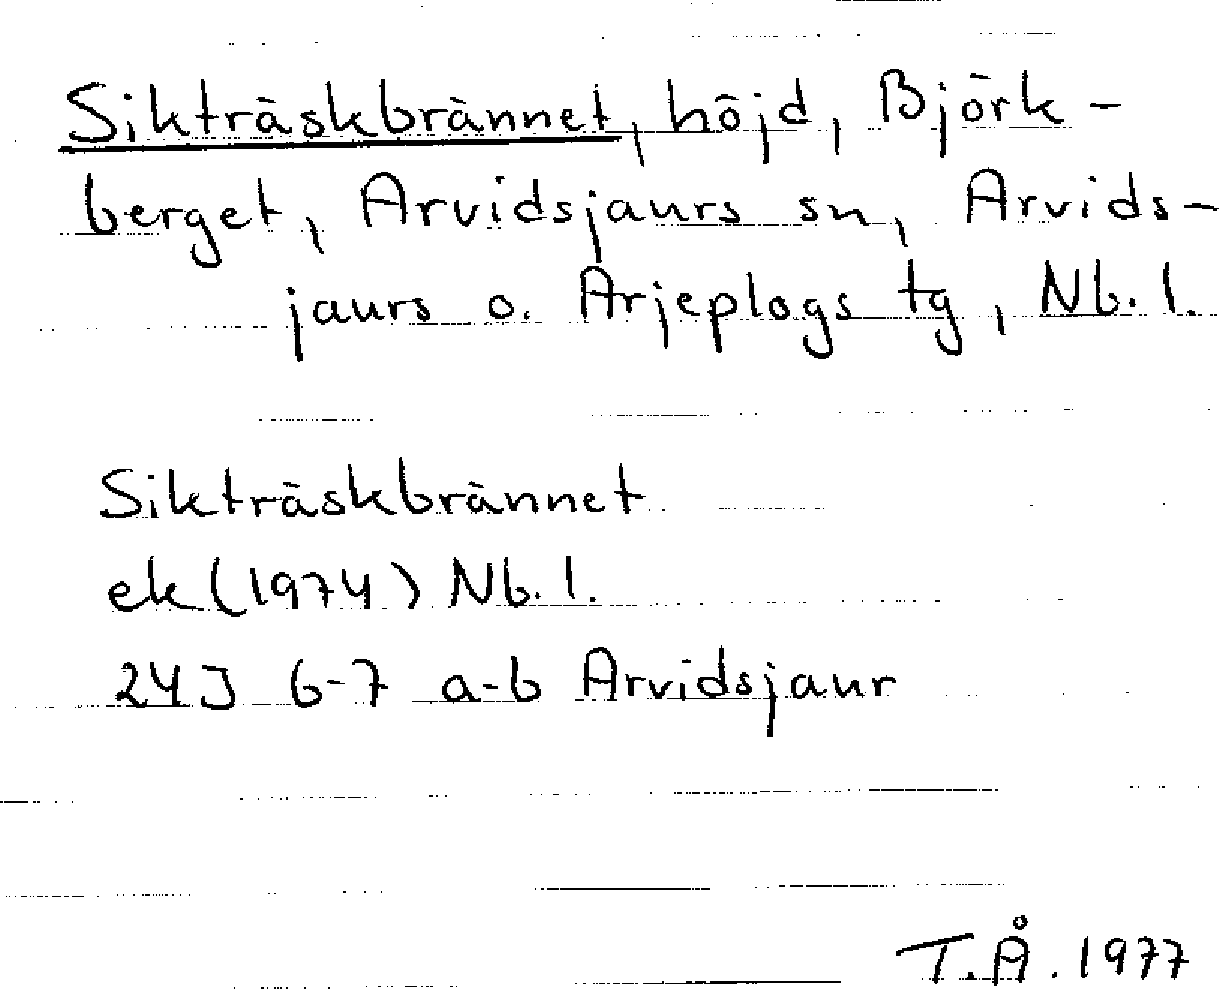 Sikträskbrännet, höjd, Björk-
berget, Arvidsjaurs sn, Arvids-
jaurs o. Arjeplogs tg, Nb. l.
Sikträskbrännet
ek (1974) Nb. l.
24J 6-7 a-b Arvidsjaur
T.Å. 1977